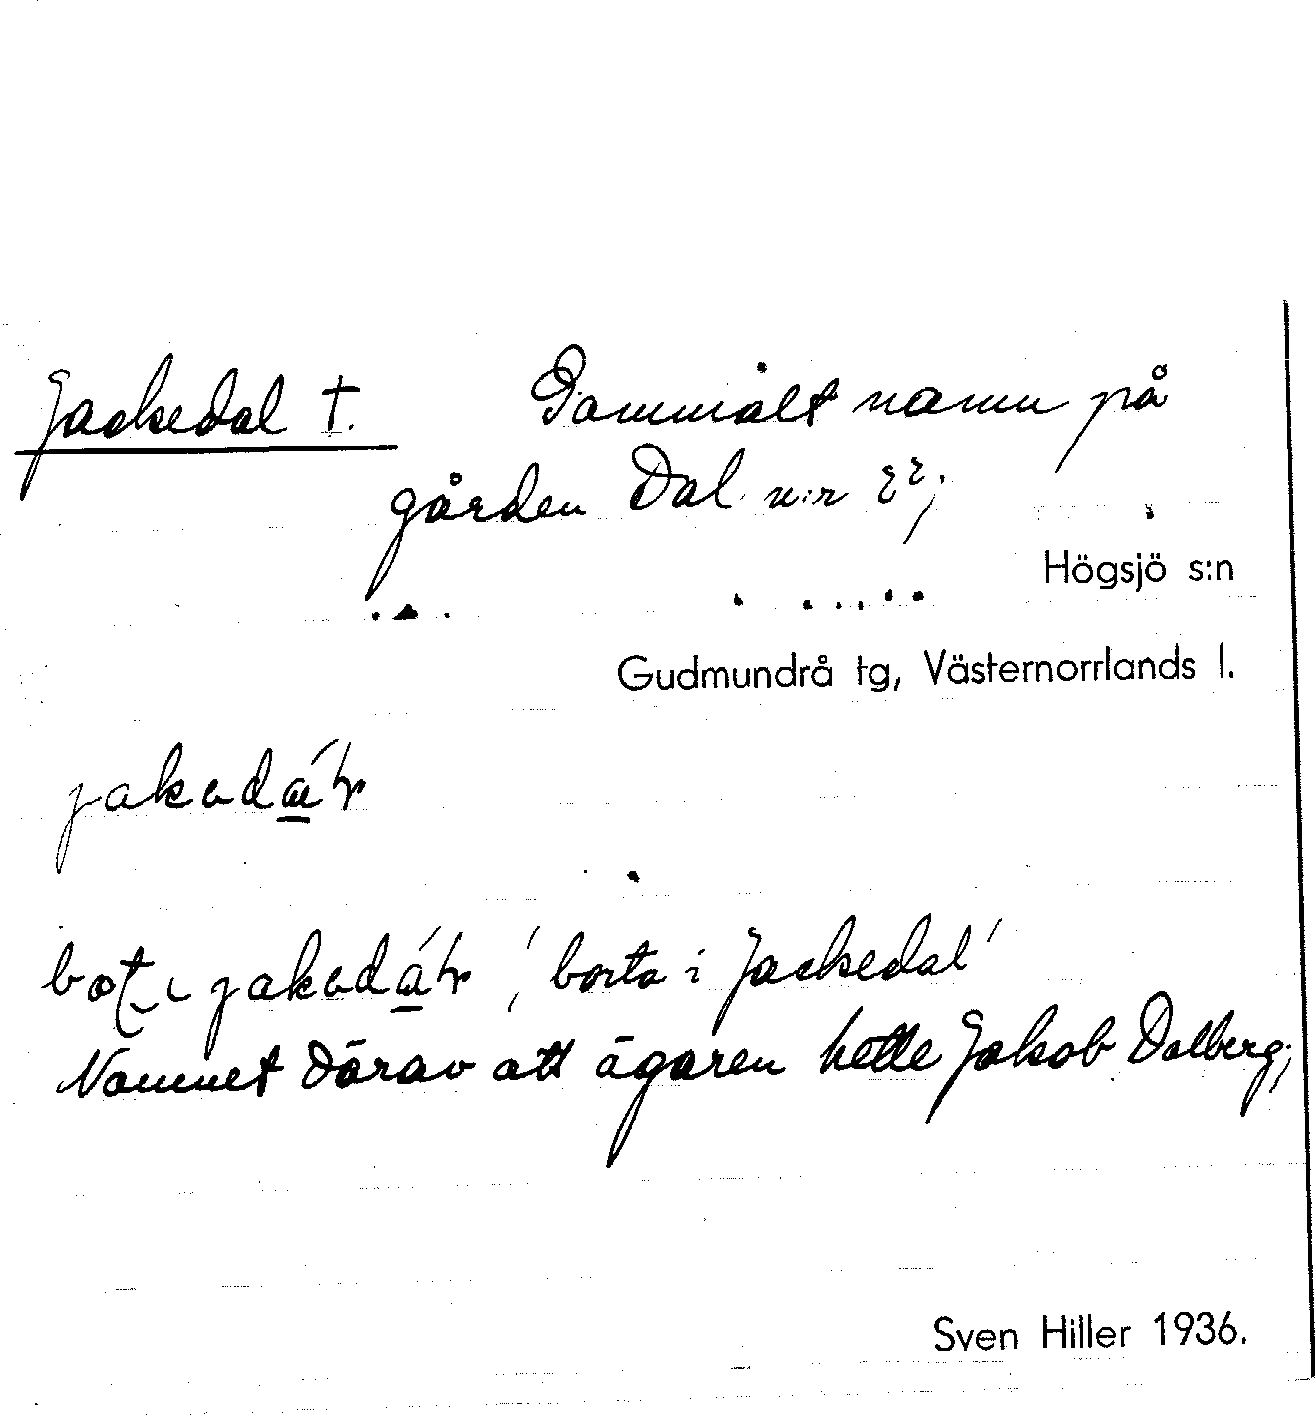 Jackedal †. Gammalt namn på
gården Dal n:r 2²;
Högsjö s:n
Gudmundrå tg, Västernorrlands l.
jakadál
jakadál 'borta i Jackedal'
Namnet därav att ägaren hette Jakob Dalberg;
Sven Hiller 1936.